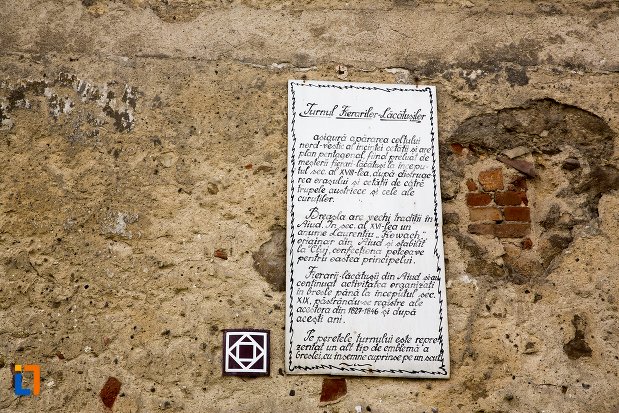 Turnul Fierarilor-Lăcătușilor
asigură apărarea colțului
nord-vestic al incintei cetății și are
plan pentagonal, fiind preluat de
meșterii fierari-lăcătuși la începu-
tul sec. al XVIII-lea, după distruge-
rea orașului și cetății de către
trupele austriece și cele ale
curuților.
Breasla are vechi tradiții în
Aiud. În sec. al XVI-lea un
anume Laurențiu „Kowach"
originar din Aiud și stabilit
la Cluj, confecționa potcoave
pentru oastea principelui.
Fierarii-lăcătuși din Aiud și-au
continuat activitatea organizați
în bresle până la începutul sec.
XIX, păstrându-se registre ale
acestora din 1827-1846 și după
acești ani.
Pe peretele turnului este repre-
zentat un alt tip de emblemă a
breslei, cu însemne cuprinse pe un scut.